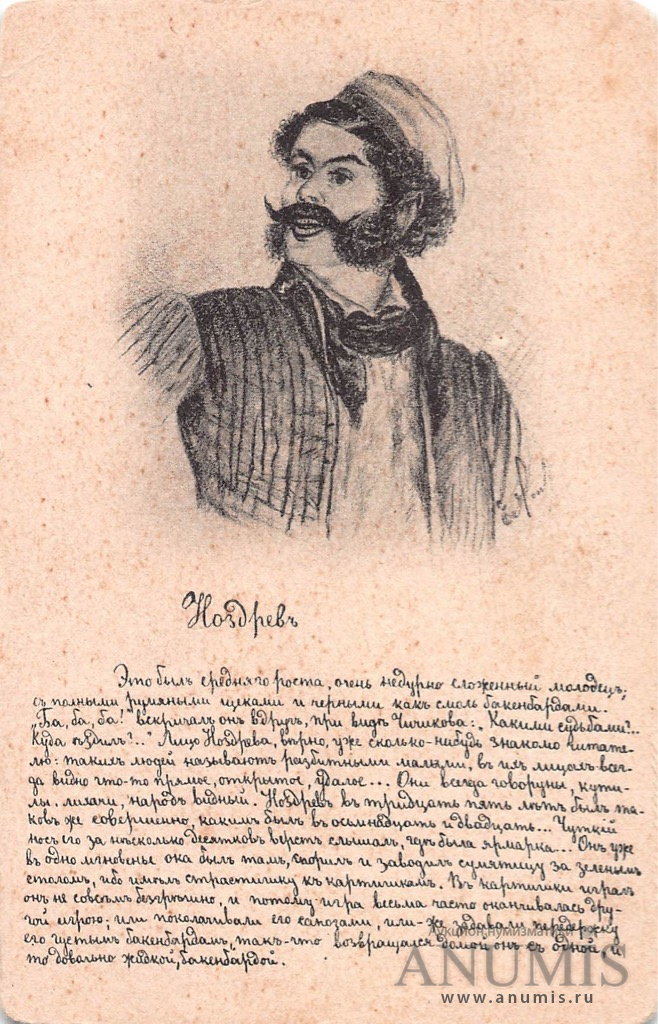 Ноздревъ
Это былъ средняго роста, очень недурно сложенный молодецъ,
съ полными румяными щеками и черными какъ смоль бакенбардами.
„Ба, ба, ба!" вскричалъ онъ вдругъ, при видѣ Чичикова: „Какими судьбами?..
Куда ѣздилъ?.." Лицо Ноздрева, вѣрно, уже сколько-нибудь знакомо читате-
лю: такихъ людей называютъ разбитными малыми, въ ихъ лицахъ все-
да видно что-то прямое, открытое, удалое... Они всегда говоруны, кути-
лы, лихачи, народъ видный. Ноздревъ въ тридцать пять лѣтъ былъ та-
ковъ же совершенно, какимъ былъ въ осьмнадцать и двадцать... Чуткій
носъ его за нѣсколько десятковъ верстъ слышалъ, гдѣ была ярмарка... Онъ уже
въ одно мгновенье ока былъ тамъ, спорилъ и заводилъ сумятицу за зеленымъ
столомъ, ибо имѣлъ страстишку къ картишкамъ. Въ картишки игралъ
онъ не совсѣмъ безгрѣшно, и потому игра весьма часто оканчивалась дру-
гой игрою: или поколачивали его сапогами, или-же задавали передержку
его густымъ бакенбардамъ, такъ-что возвращался домой онъ съ одной, и
то довольно жидкой, бакенбардой.
Аукцион нумизматики
ANUMIS
www.anumis.ru